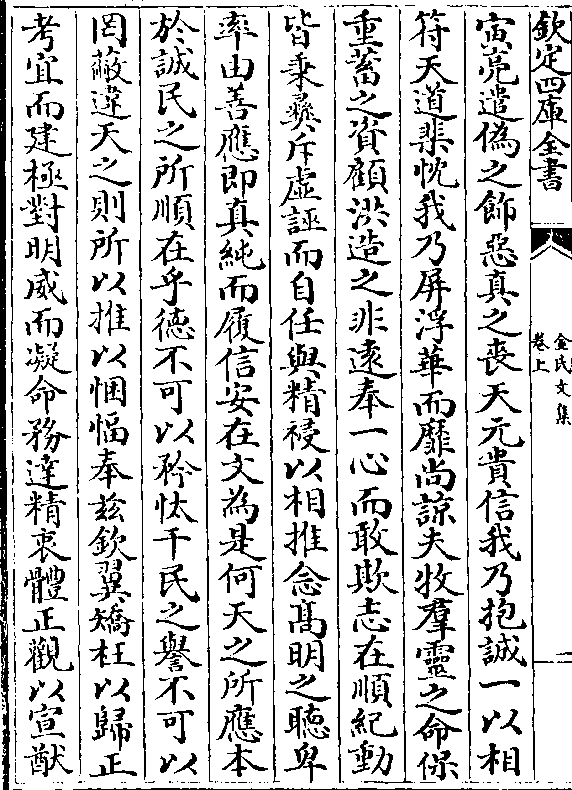 欽定四庫全書
金氏文集
卷上
一
寅亮遣偽之飾惡真之喪天元貴信我乃抱誠一以相
符天道棐忱我乃屏浮華而靡尚諒夫牧羣靈之命保
重蓄之資顧洪造之非遠奉一心而敢欺志在順紀動
皆秉彝斥虛誣而自任與精祲以相推念髙明之聴卑
率由善應即真純而履信安在文為是何天之所應本
於誠民之所順在乎徳不可以矜忲干民之譽不可以
罔蔽違天之則所以推以悃愊奉兹欽翼矯枉以歸正
考宜而建極對明威而凝命務達精衷體正觀以宣猷